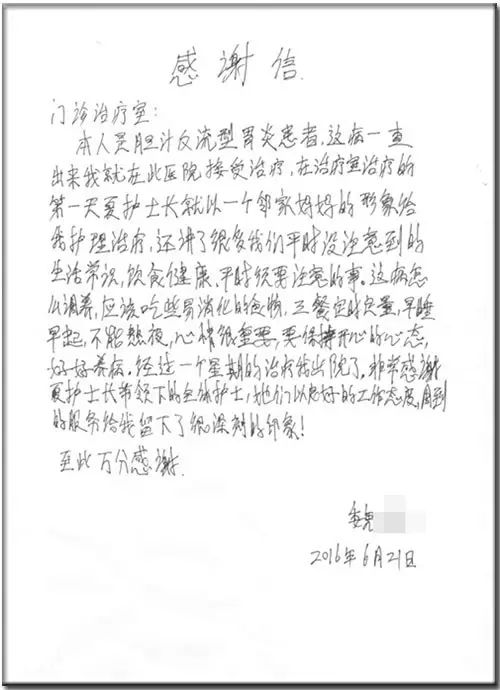 感谢信
门诊治疗室:
本人是胆汁反流型胃炎患者,这病一查
出来我就在此医院接受治疗,在治疗室治疗的
第一天夏护士长就以一个邻家妈妈的形象给
我护理治疗,还讲了很多我们平时没注意到的
生活常识,饮食健康、平时须要注意的事。这病怎
么调养,应该吃些胃消化的食物,三餐定时定量,早睡
早起,不能熬夜,心情很重要,要保持开心的心态,
好好养病,经过一个星期的治疗我出院了。非常感谢
夏护士长带领下的全体护士,她们以良好的工作态度,周到
的服务给我留下了很深刻的印象!
至此万分感谢.
魏
2016年6月21日